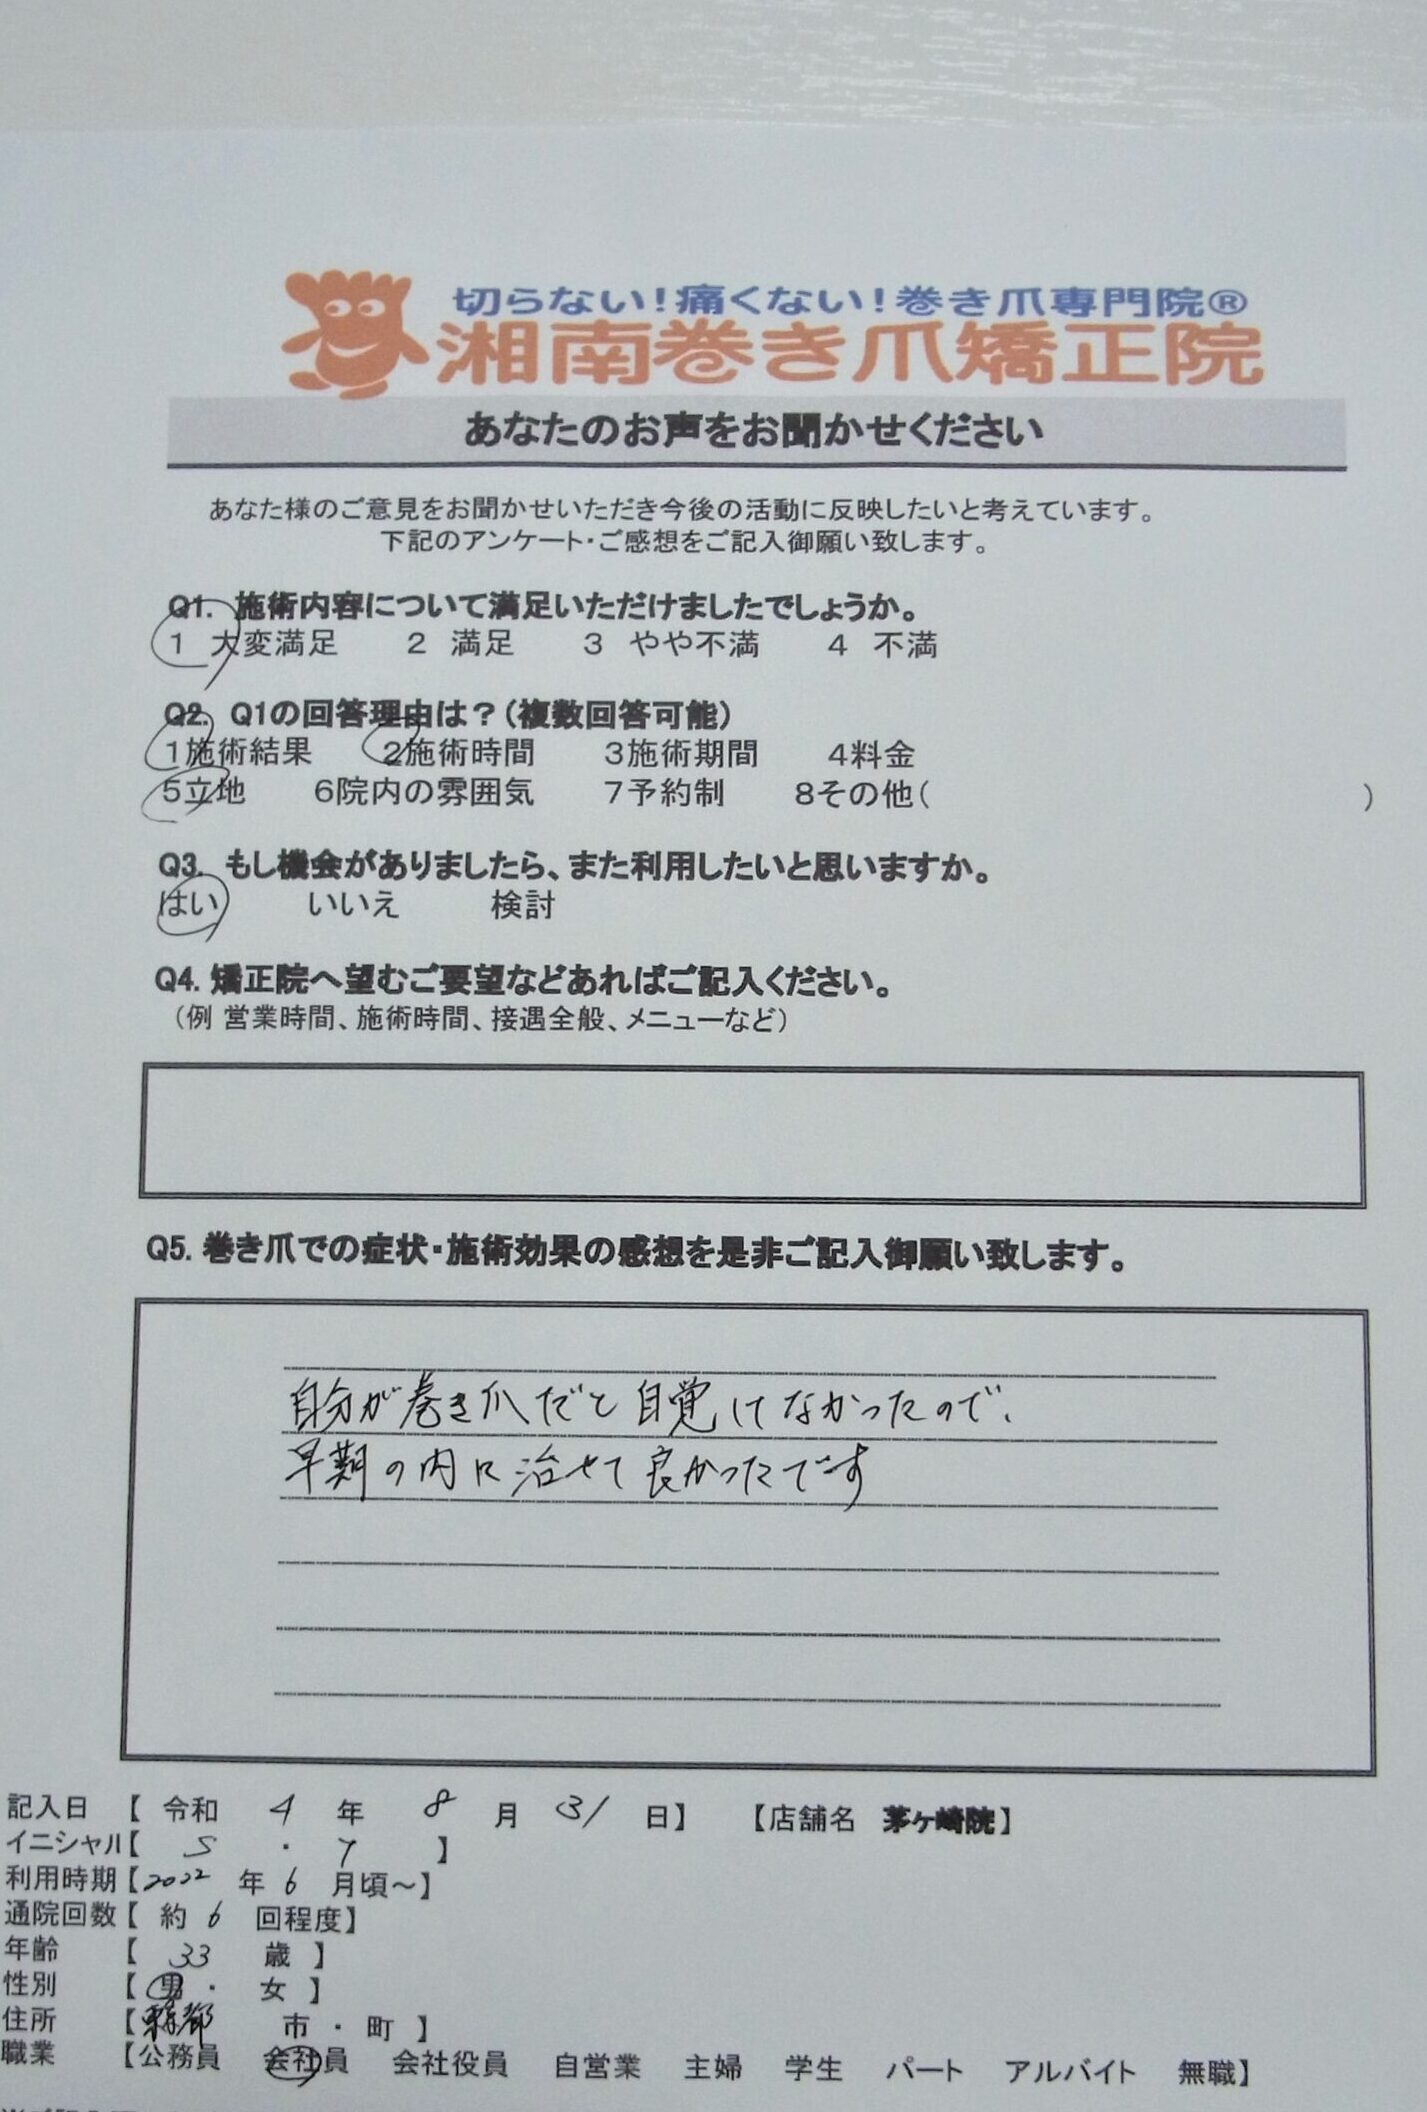 切らない！痛くない！巻き爪専門院®
湘南巻き爪矯正院
あなたのお声をお聞かせください
あなた様のご意見をお聞かせいただき今後の活動に反映したいと考えています。
下記のアンケート・ご感想をご記入御願い致します。
Q1. 施術内容について満足いただけましたでしょうか。
1 大変満足 2 満足 3 やや不満 4 不満
Q2. Q1の回答理由は？（複数回答可能）
1施術結果 2施術時間 3施術期間 4料金
5立地 6院内の雰囲気 7予約制 8その他（ ）
Q3. もし機会がありましたら、また利用したいと思いますか。
はい いいえ 検討
Q4. 矯正院へ望むご要望などあればご記入ください。
（例 営業時間、施術時間、接遇全般、メニューなど）
Q5. 巻き爪での症状・施術効果の感想を是非ご記入御願い致します。
自分が巻き爪だと自覚してなかったので、
早期の内に治せて良かったです
記入日 【 令和 4 年 8 月 31 日】 【店舗名 茅ヶ崎院】
イニシャル【 S ・ Y 】
利用時期【2022 年 6 月頃～】
通院回数【 約 6 回程度】
年齢 【 33 歳 】
性別 【 男 ・ 女 】
住所 【東京都 市 ・ 町 】
職業 【公務員 会社員 会社役員 自営業 主婦 学生 パート アルバイト 無職】